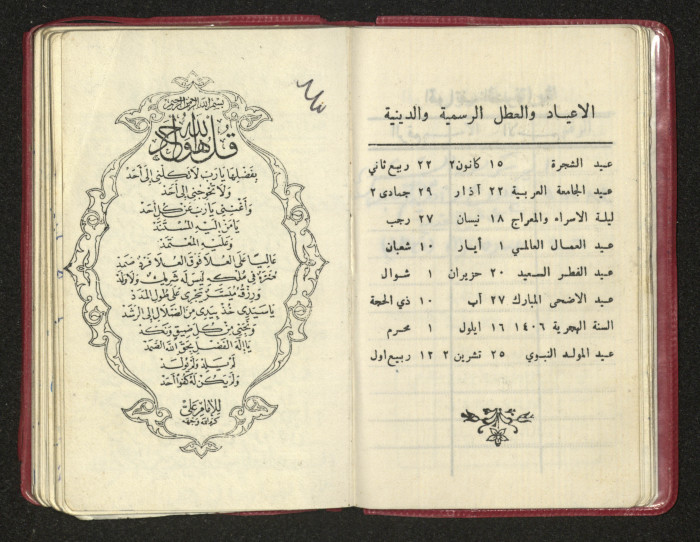 الاعياد والعطل الرسمية والدينية
عيد الشجرة ١٥ كانون٢ ٢٢ ربيع ثاني
عيد الجامعة العربية ٢٢ آذار ٢٩ جمادى ٢
ليلة الاسراء والمعراج ١٨ نيسان ٢٧ رجب
عيد العمال العالمي ١ أيار ١٠ شعبان
عيد الفطر السعيد ٢٠ حزيران ١ شوال
عيد الاضحى المبارك ٢٧ آب ١٠ ذي الحجة
السنة الهجرية ١٤٠٦ ١٦ ايلول ١ محرم
عيد المولد النبوي ٢٥ تشرين ٢ ١٢ ربيع اول
بسم الله الرحمن الرحيم
قل هو الله احد
بفضلها يا رب لا تكلني الى أحد
ولا تحوجني الى أحد
وأغنني يا رب عن كل أحد
يا من إليه المستند
وعليه المعتمد
عاليا على العلا فوق العلا فرد صمد
منزه في ملكه ليس له شريك ولا ولد
ورزق ميسر يجري على طول المدد
يا سيدي خذ بيدي من الضلال إلى الرشد
ونجني من كل ضيق ونكد
يا إله الفضل بحق الله الصمد
لم يلد ولم يولد
ولم يكن له كفوا أحد
للإمام علي
كرم الله وجهه